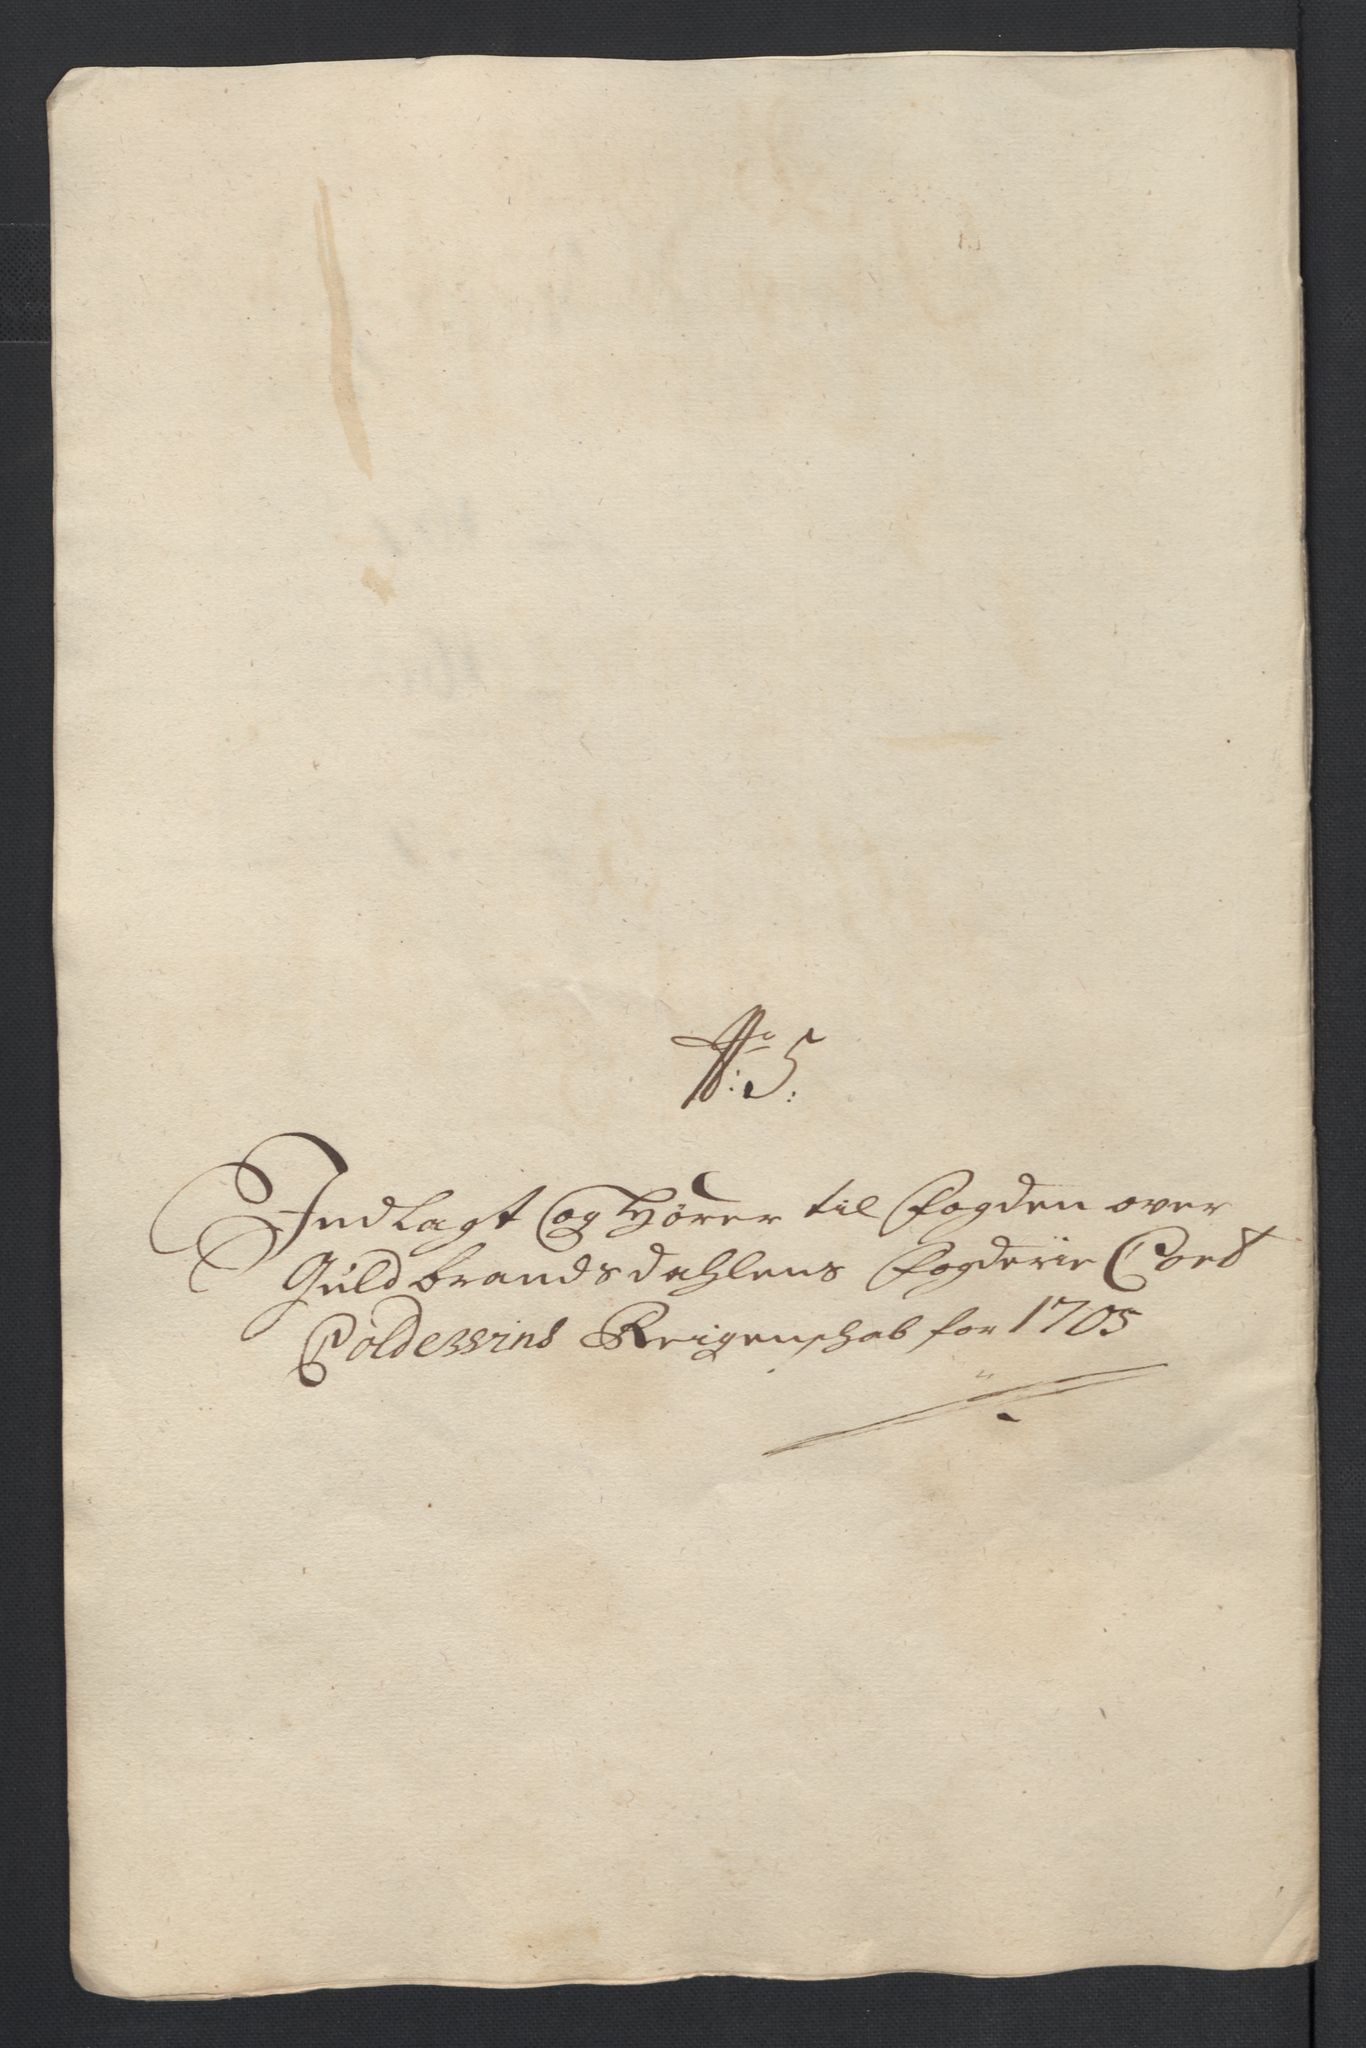 No: 5:
Indlagt og Hører til Fogden over
Guldbrandsdahlens Fogderie Cord
Coldevvins Reigenschab for 1705